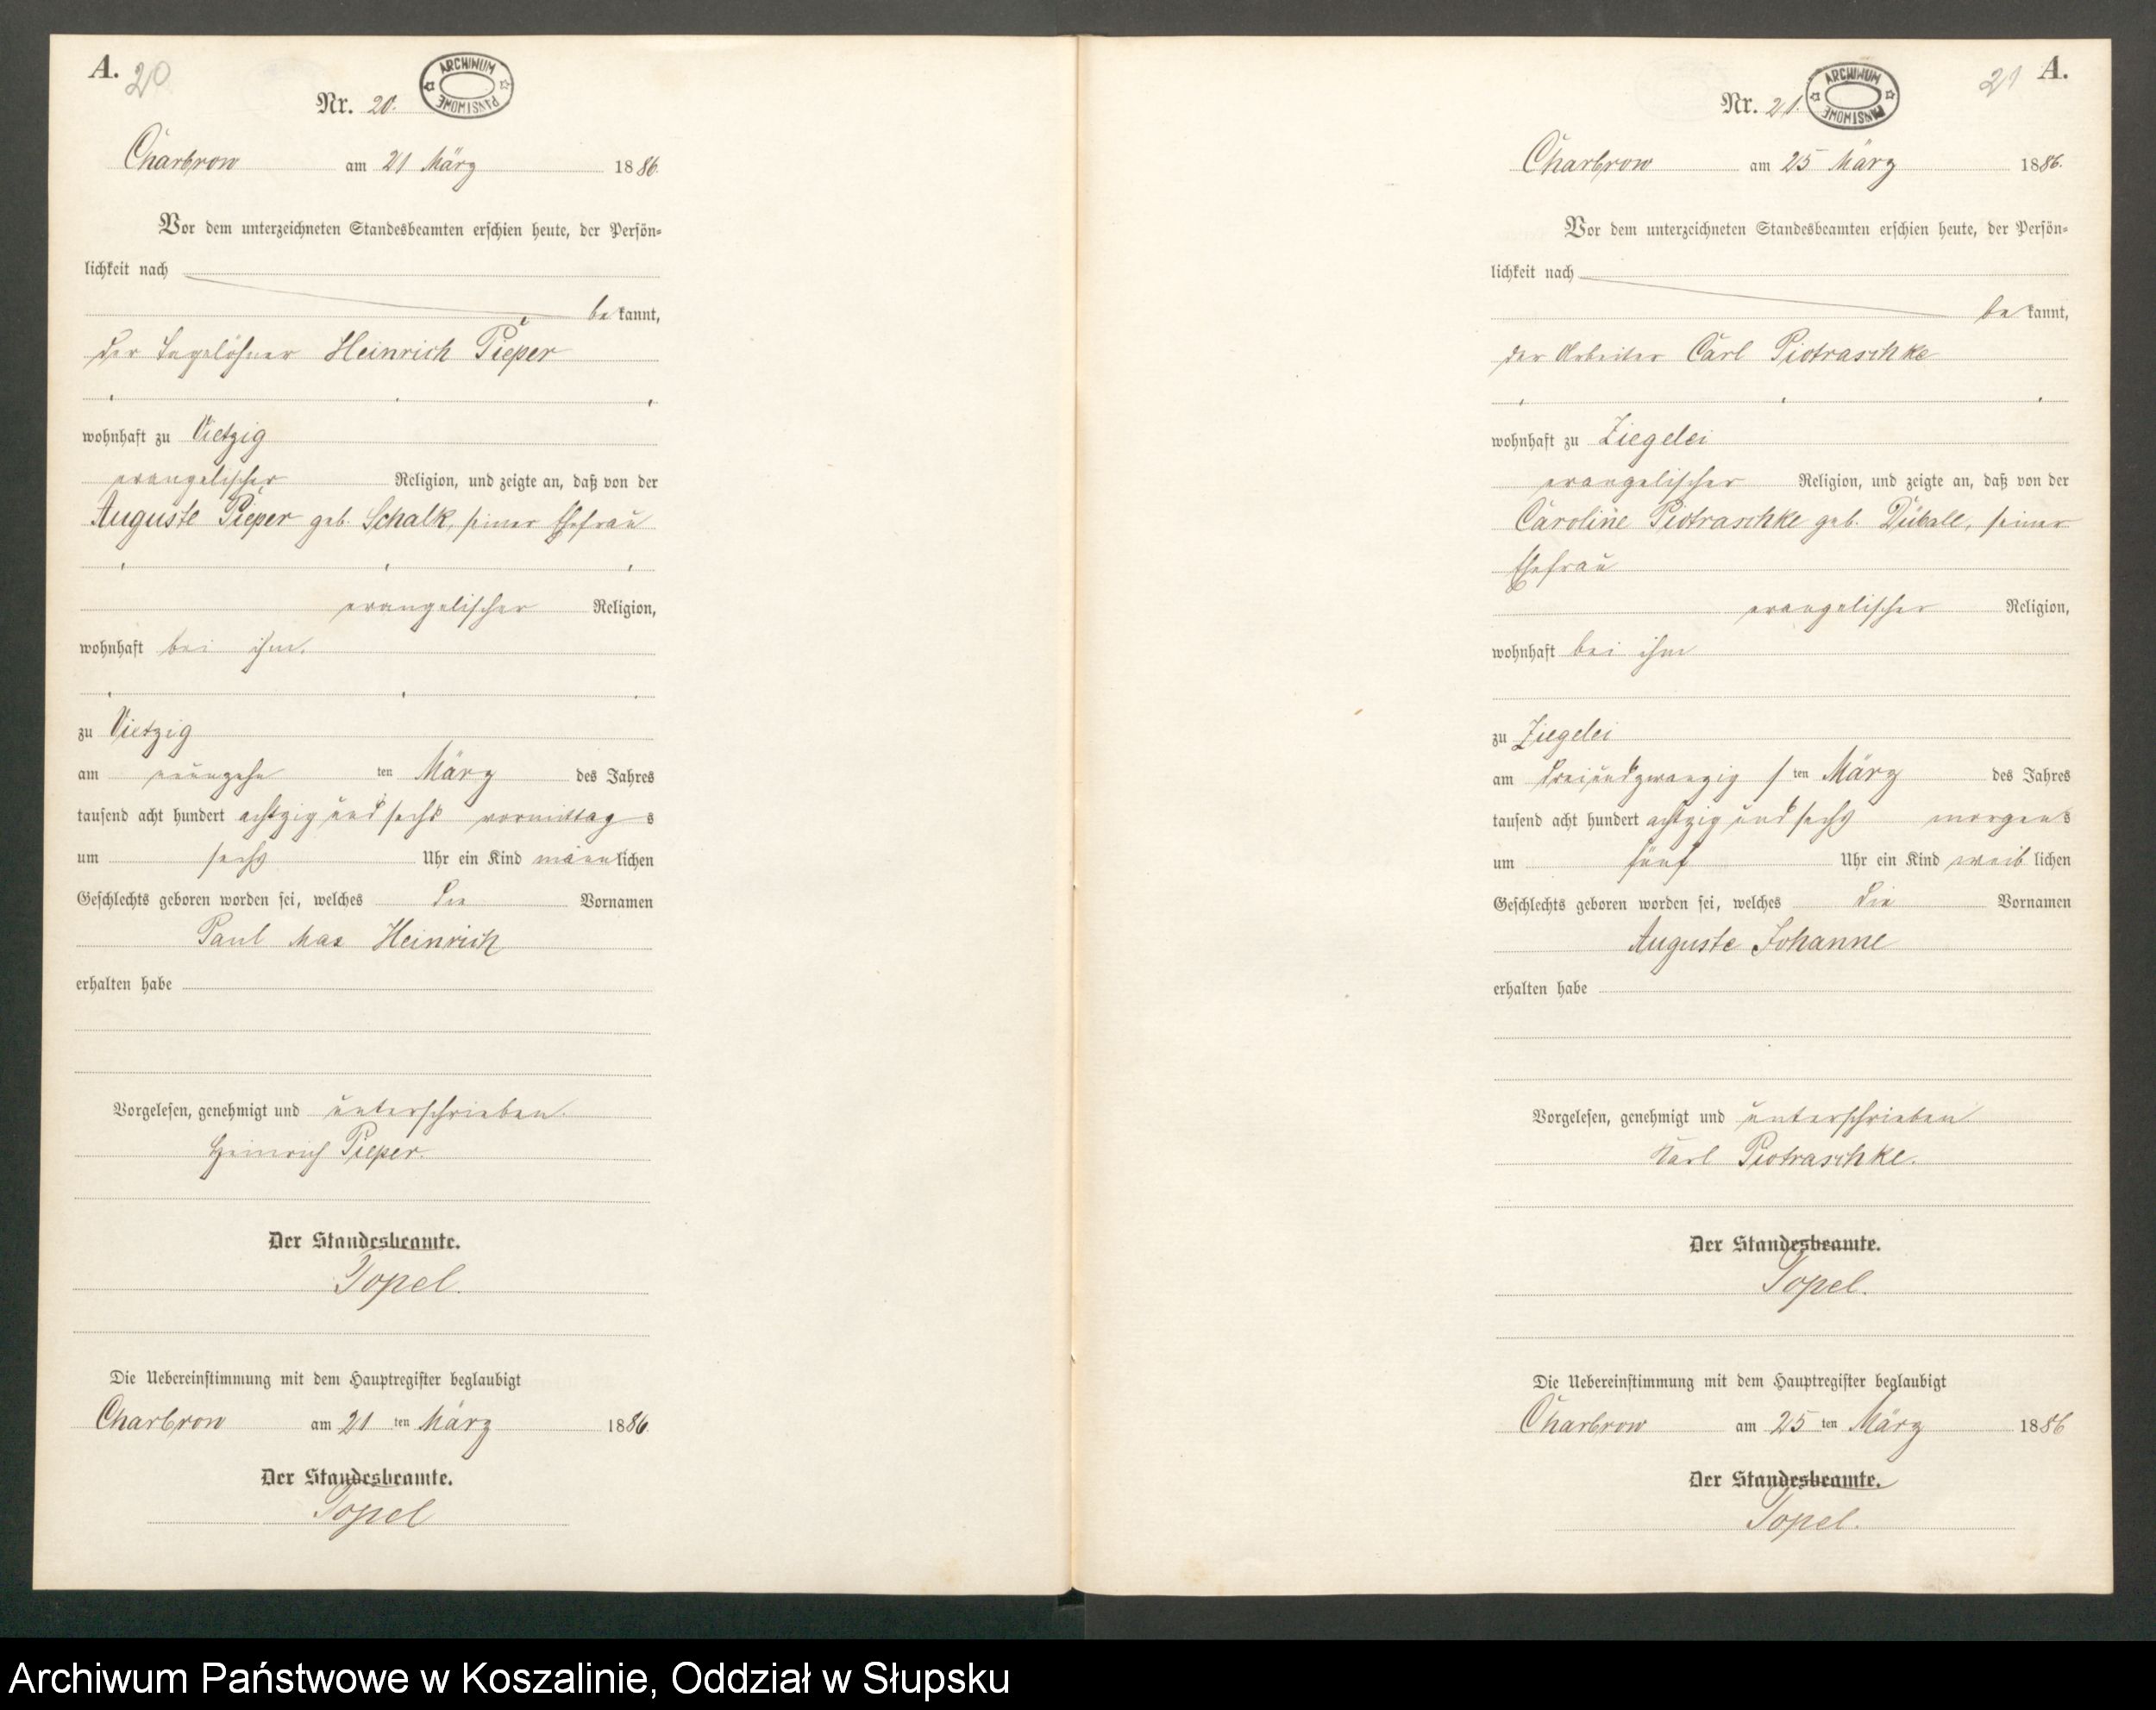 A. 20
ARCHIWUM PAŃSTWOWE
Nr. 20.
Charbrow am 21 März 1886.
Vor dem unterzeichneten Standesbeamten erschien heute, der Persön-
lichkeit nach
bekannt,
der Tagelöhner Heinrich Pieper
wohnhaft zu Vietzig
evangelischer Religion, und zeigte an, daß von der
Auguste Pieper geb. Schalk, seiner Ehefrau
evangelischer Religion,
wohnhaft bei ihm.
zu Vietzig
am neunzehn ten März des Jahres
tausend acht hundert achtzig und sechs vormittags
um sechs Uhr ein Kind männlichen
Geschlechts geboren worden sei, welches die Vornamen
Paul Max Heinrich
erhalten habe
Vorgelesen, genehmigt und unterschrieben.
Heinrich Pieper.
Der Standesbeamte.
Topel.
Die Uebereinstimmung mit dem Hauptregister beglaubigt
Charbrow am 21 ten März 1886.
Der Standesbeamte.
Topel
21 A.
ARCHIWUM PAŃSTWOWE
Nr. 21.
Charbrow am 25 März 1886.
Vor dem unterzeichneten Standesbeamten erschien heute, der Persön-
lichkeit nach
bekannt,
der Arbeiter Carl Piotraschke
wohnhaft zu Ziegelei
evangelischer Religion, und zeigte an, daß von der
Caroline Piotraschke geb. Düball, seiner
Ehefrau
evangelischer Religion,
wohnhaft bei ihm
zu Ziegelei
am dreiundzwanzig sten März des Jahres
tausend acht hundert achtzig und sechs morgens
um fünf Uhr ein Kind weiblichen
Geschlechts geboren worden sei, welches die Vornamen
Auguste Johanne
erhalten habe
Vorgelesen, genehmigt und unterschrieben
Karl Piotraschke.
Der Standesbeamte.
Topel.
Die Uebereinstimmung mit dem Hauptregister beglaubigt
Charbrow am 25 ten März 1886
Der Standesbeamte.
Topel.
Archiwum Państwowe w Koszalinie, Oddział w Słupsku